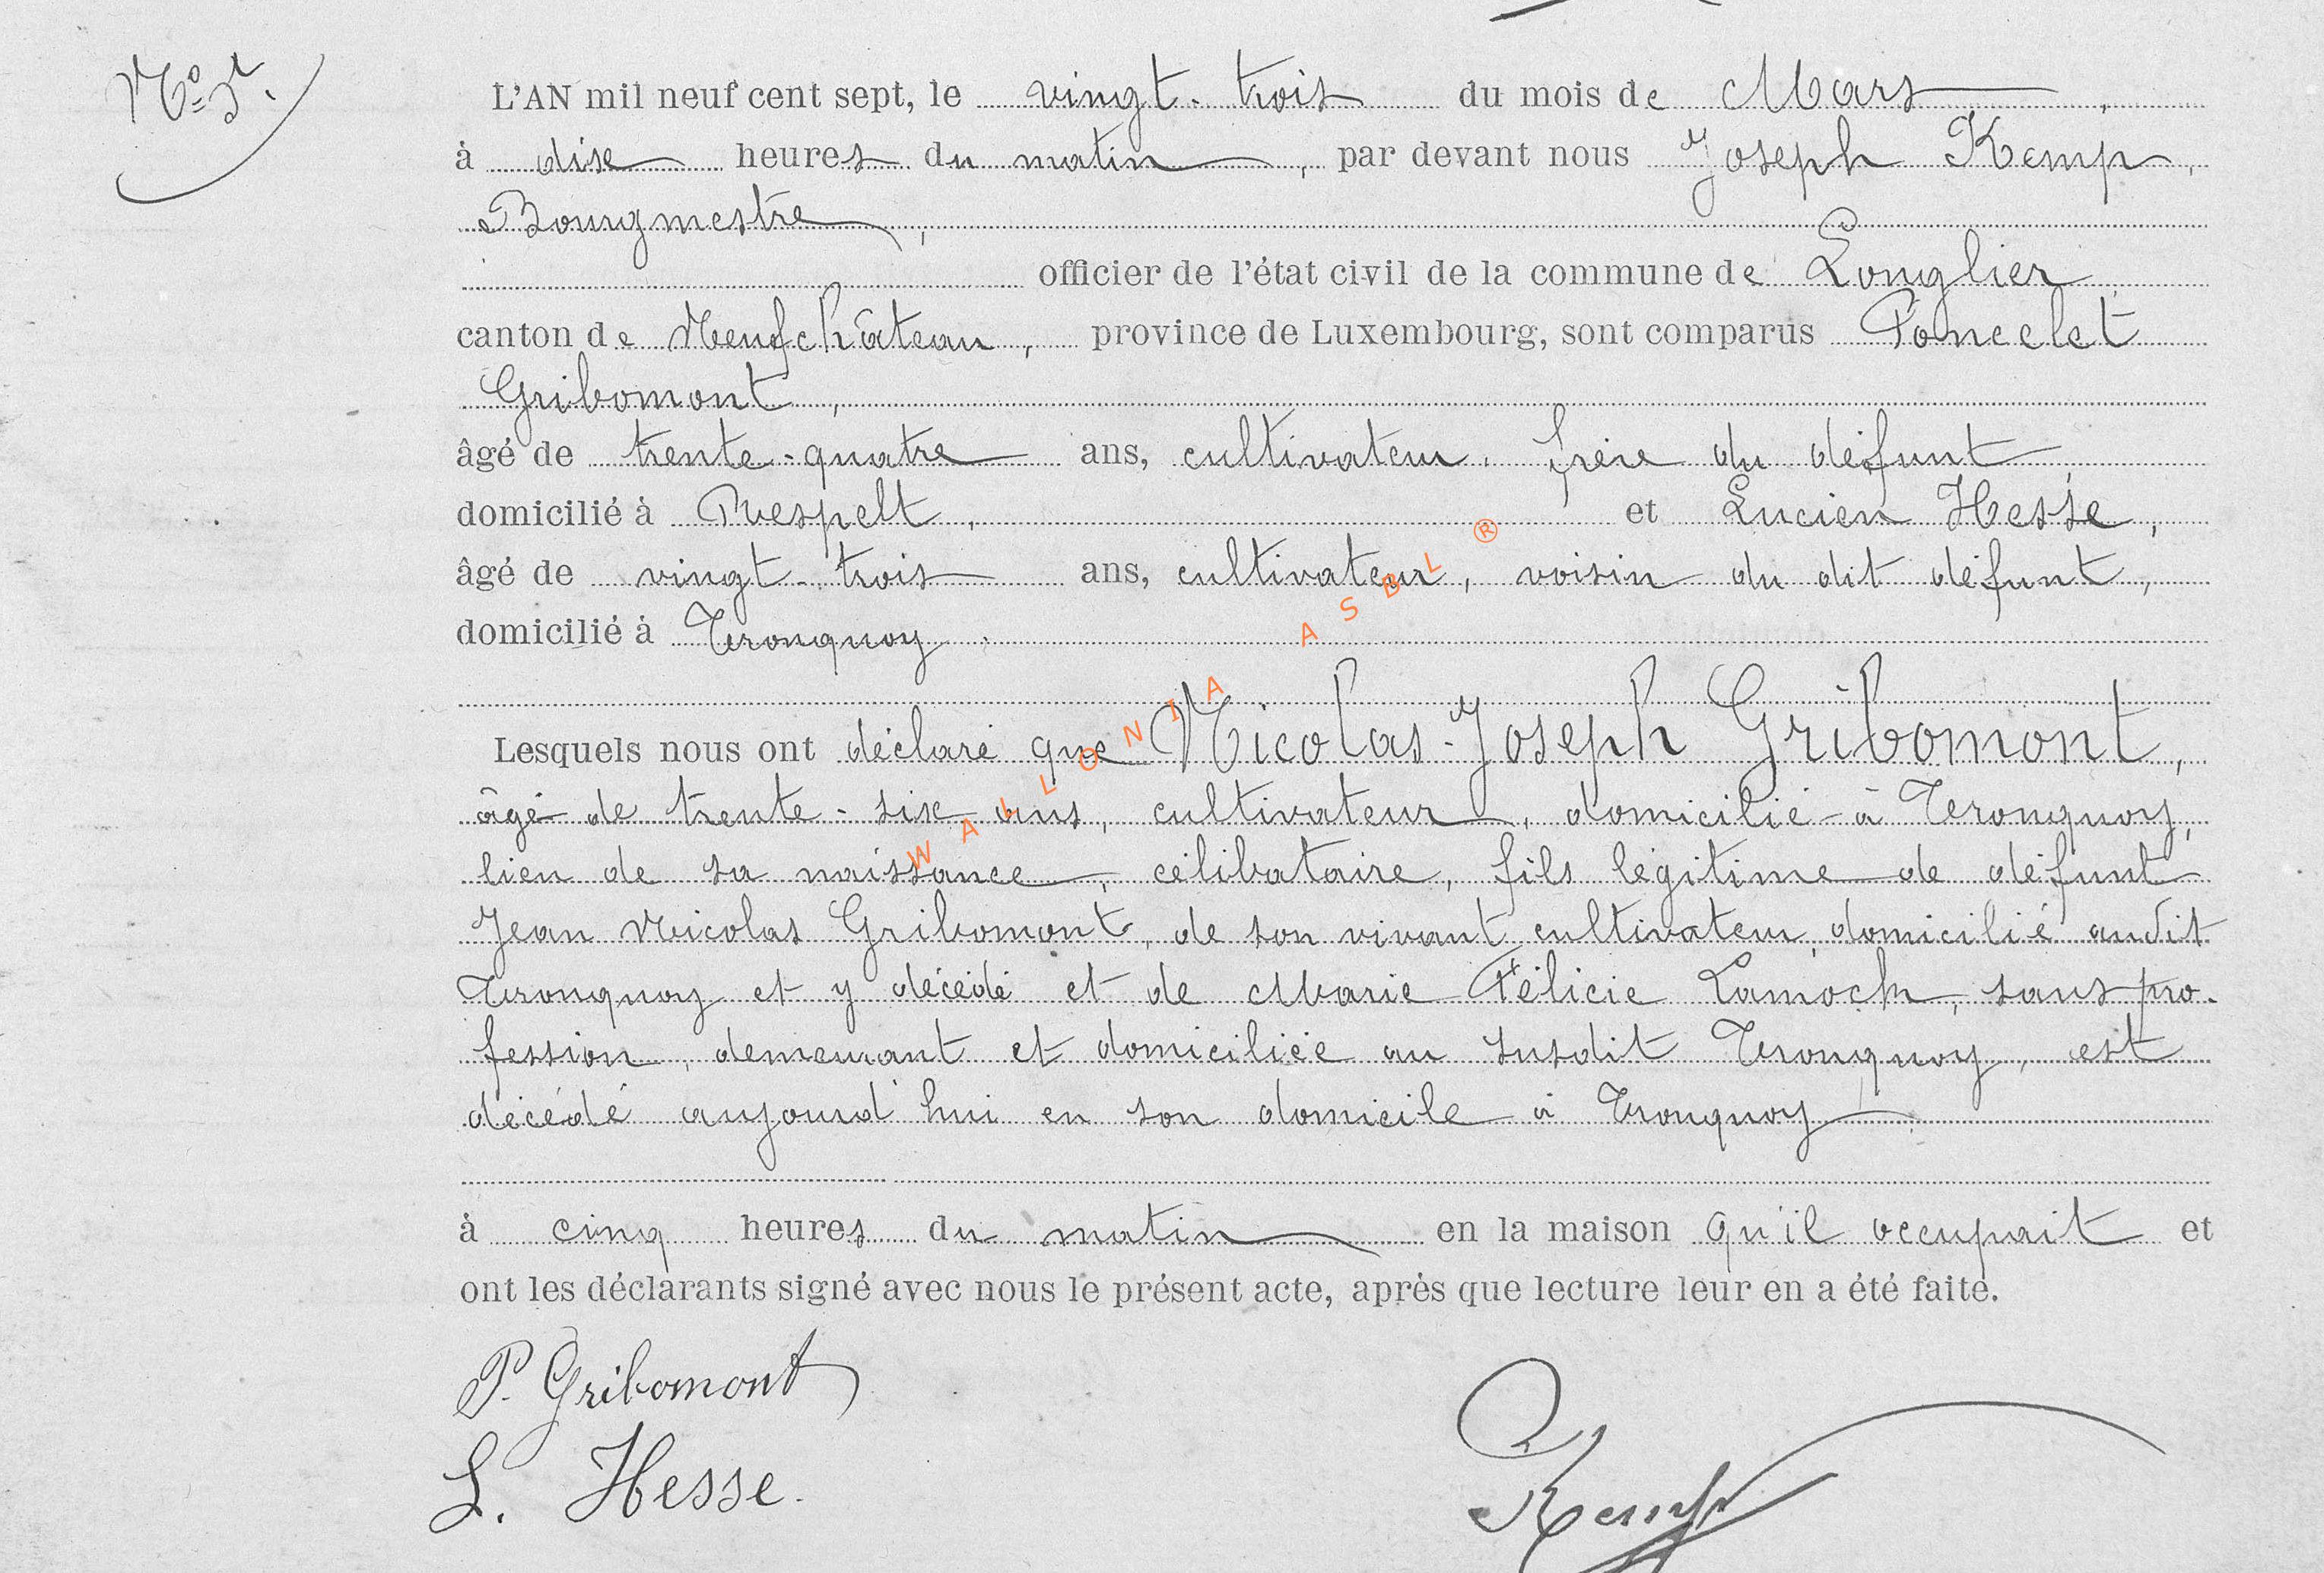 N° 5.
L'AN mil neuf cent sept, le vingt-trois du mois de Mars,
à dix heures du matin, par devant nous Joseph Kemp,
Bourgmestre,
officier de l'état civil de la commune de Longlier,
canton de Neufchâteau, province de Luxembourg, sont comparus Poncelet
Gribomont,
âgé de trente-quatre ans, cultivateur, frère du défunt,
domicilié à Respelt, et Lucien Hesse,
âgé de vingt-trois ans, cultivateur, voisin du dit défunt,
domicilié à Tronquoy.
Lesquels nous ont déclaré que Nicolas-Joseph Gribomont,
âgé de trente-six ans, cultivateur, domicilié à Tronquoy,
lieu de sa naissance, célibataire, fils légitime de défunt
Jean Nicolas Gribomont, de son vivant cultivateur, domicilié audit
Tronquoy et y décédé et de Marie Félicie Lamock, sans pro-
fession, demeurant et domiciliée au susdit Tronquoy, est
décédé aujourd'hui en son domicile à Tronquoy
à cinq heures du matin en la maison qu'il occupait et
ont les déclarants signé avec nous le présent acte, après que lecture leur en a été faite.
P. Gribomont
L. Hesse.
Kemp
WALLONIA ASBL ®